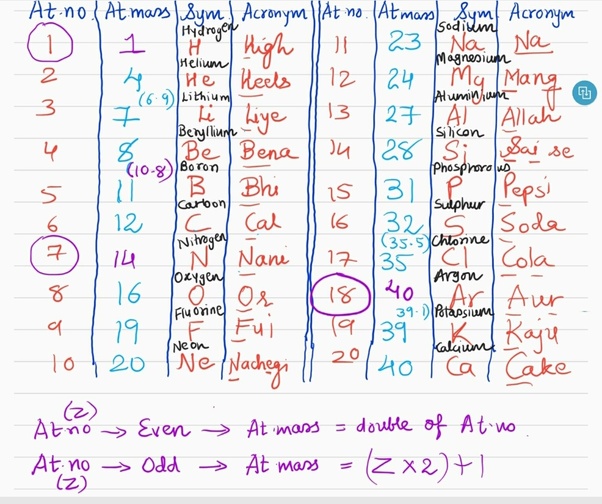 At. no At mass Sym Acronym At no. At mass Sym Acronym
Hydrogen Sodium
1 1 H High 11 23 Na Na
Helium Magnesium
2 4 He Heels 12 24 Mg Mang
(6.9) Lithium Aluminium
3 7 Li Liye 13 27 Al Allah
Beryllium Silicon
4 8 Be Bena 14 28 Si Sai se
(10.8) Boron Phosphorous
5 11 B Bhi 15 31 P Pepsi
Carbon Sulphur
6 12 C Cal 16 32 S Soda
Nitrogen (35.5) Chlorine
7 14 N Nani 17 35 Cl Cola
Oxygen Argon
8 16 O Or 18 40 Ar Aur
Fluorine 39.1) Potassium
9 19 F Fui 19 39 K Kaju
Neon Calcium
10 20 Ne Nachegi 20 40 Ca Cake
(Z)
At no → Even → At. mass = double of At. no.
At. no → Odd → At mass = (Z × 2) + 1
(Z)